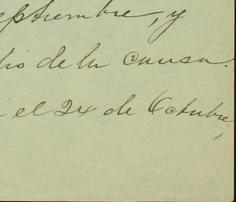 eptiembre, y
dio de la causa.
el 24 de Octubre,